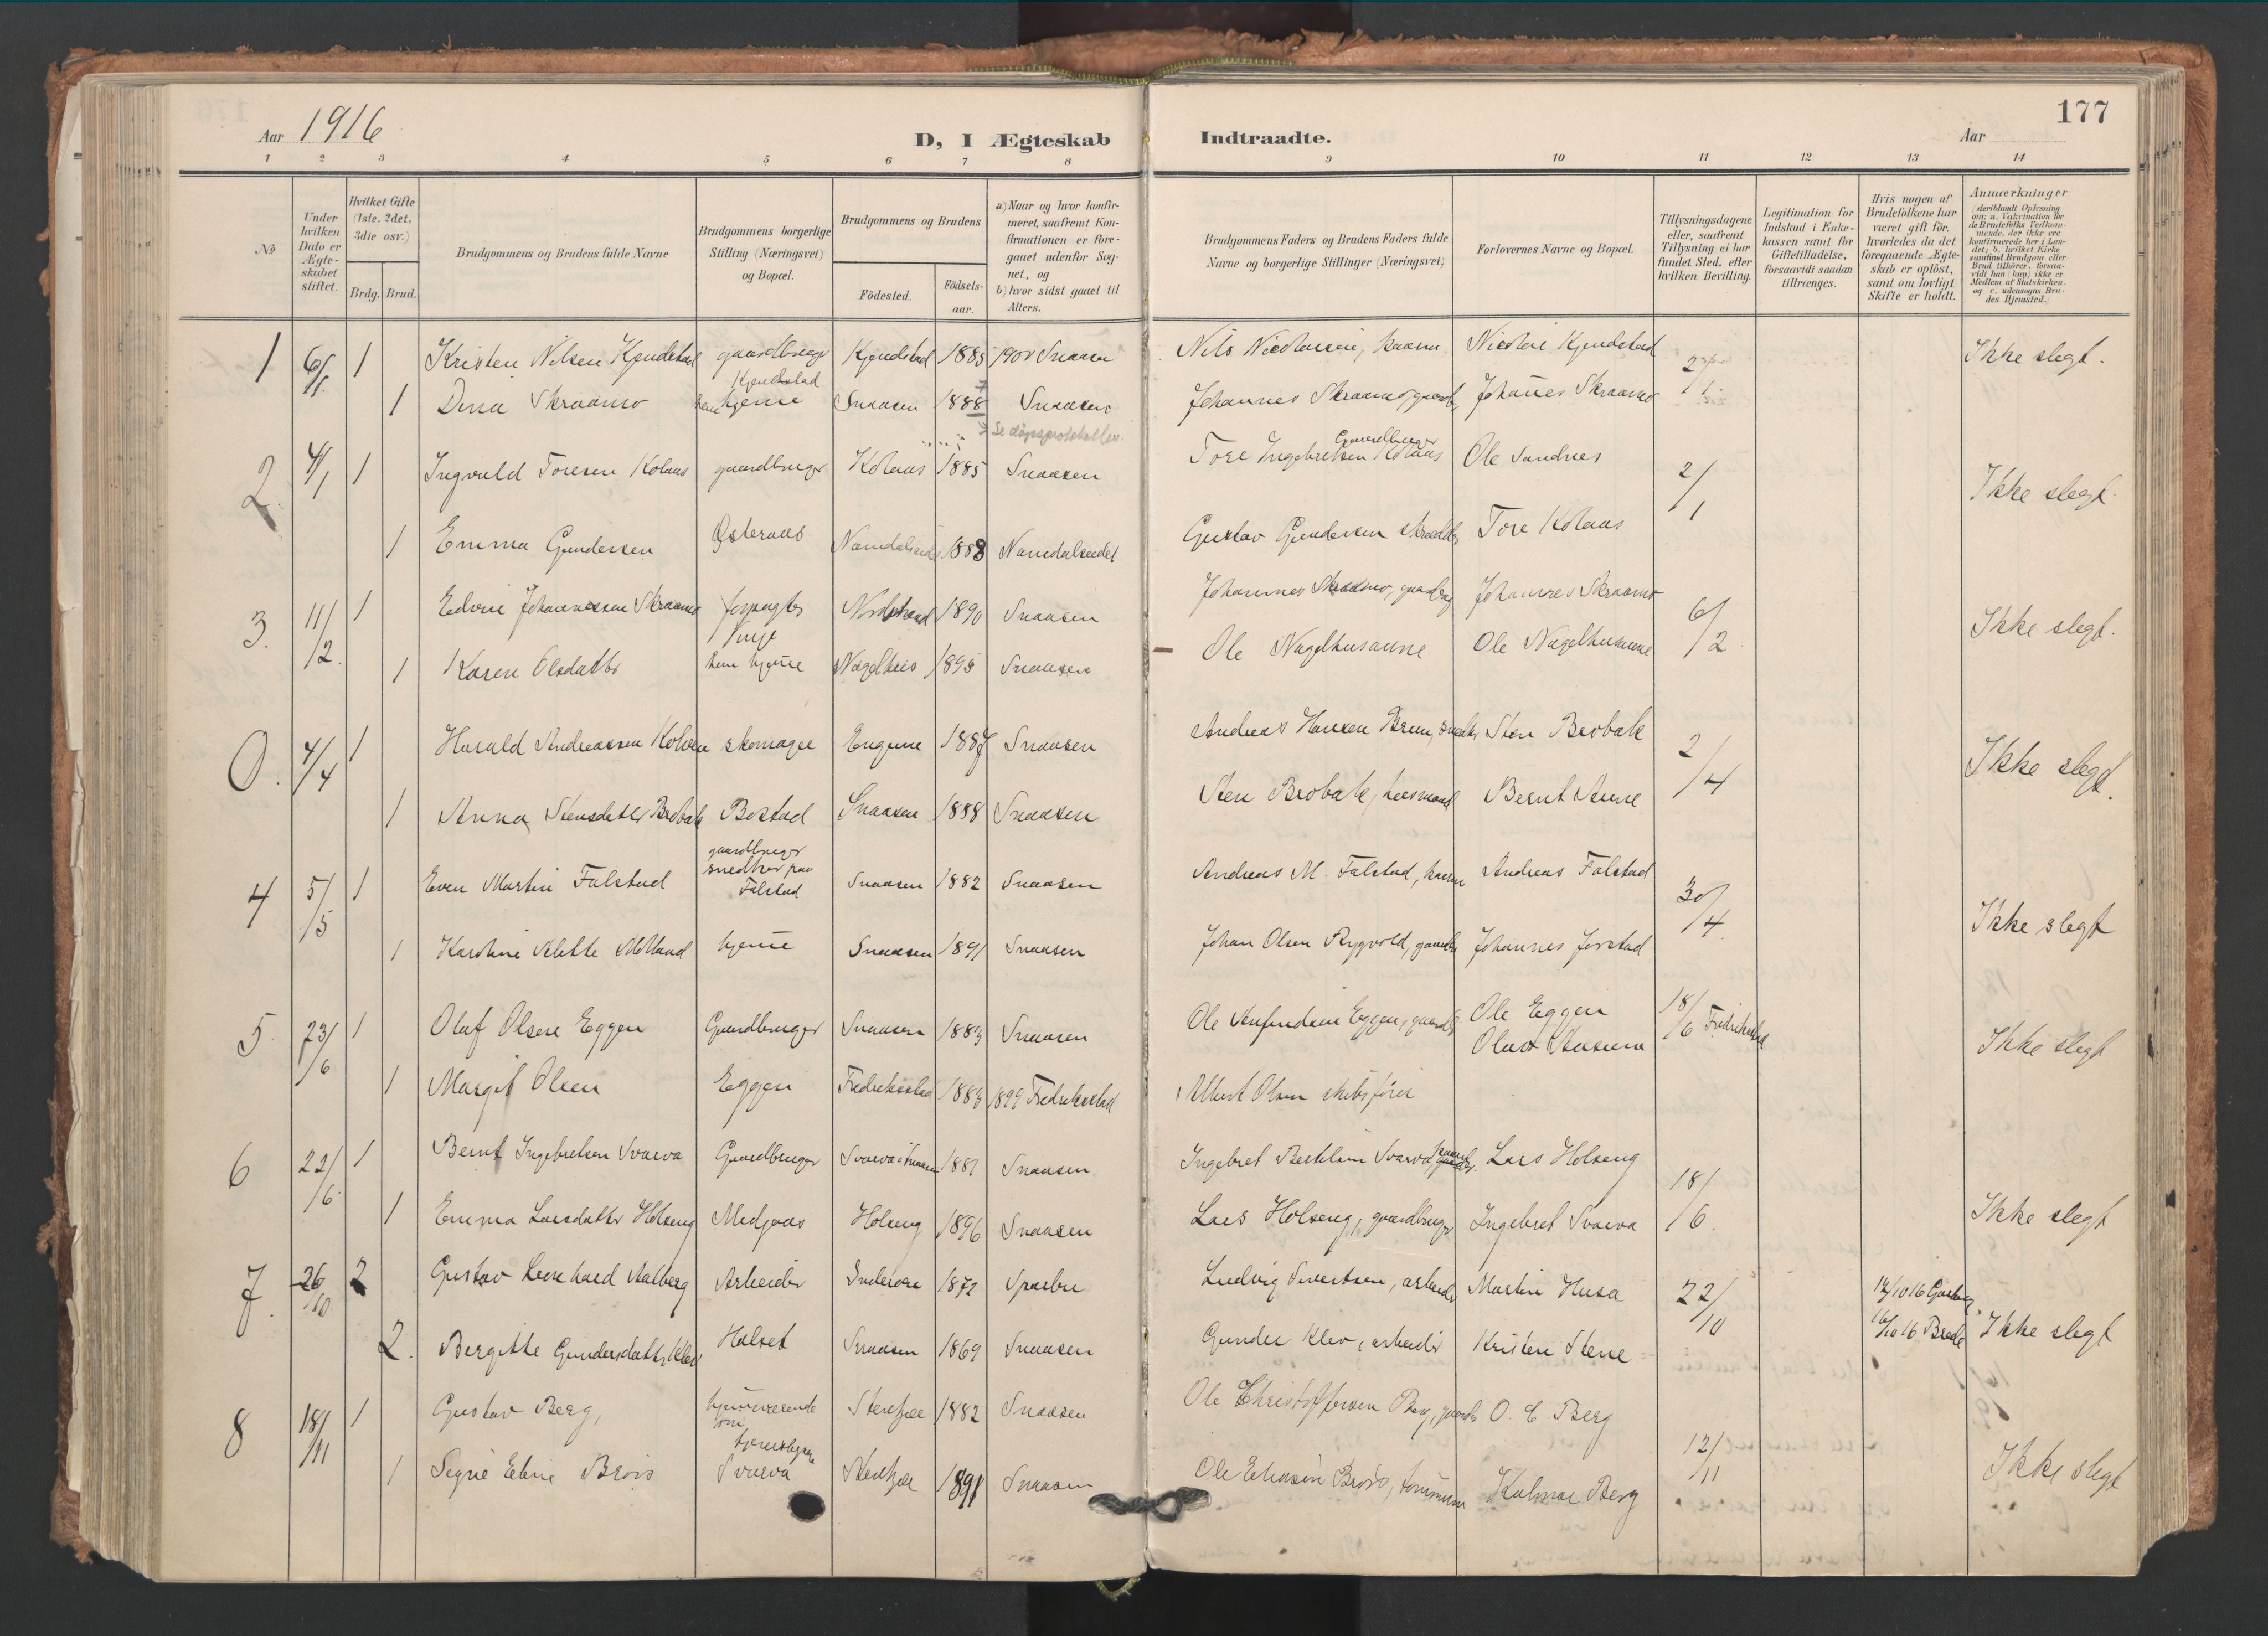 177
Aar 1916
D, I Ægteskab Indtraadte.
Aar
1 2 3 4 5 6 7 8 9 10 11 12 13 14
No
Under hvilken Dato er Ægteskabet stiftet.
Hvilket Gifte (1ste. 2det. 3die osv.)
Brdg. Brud.
Brudgommens og Brudens fulde Navne
Brudgommens borgerlige Stilling (Næringsvei) og Bopæl.
Brudgommens og Brudens
Födested.
Födsels-aar.
a) Naar og hvor konfirmeret, saafremt Konfirmationen er foregaaet udenfor Sognet, og
b) hvor sidst gaaet til Alters.
Brudgommens Faders og Brudens Faders fulde Navne og borgerlige Stillinger (Næringsvei)
Forlovernes Navne og Bopæl.
Tillysningsdagene eller, saafremt Tillysning ei har fundet Sted, efter hvilken Bevilling.
Legitimation for Indskud i Enkekassen samt for Giftetilladelse, forsaavidt saadan tiltrænges.
Hvis nogen af Brudefolkene har været gift för, hvorledes da det foregaaende Ægteskab er oplöst, samt om lovligt Skifte er holdt.
Anmærkninger (deriblandt Oplysning om: a. Vakcination for de Brudefolks Vedkommende, der ikke ere konfirmerede her i Landet; b. hvilket Kirkesamfund Brudgom eller Brud tilhörer, forsaavidt han (hun) ikke er Medlem af Statskirken, og c. udensogns Brudes Hjemsted.)
1 6/1 1 Kristen Nilsen Kjendstad gaardbruger Kjendstad Kjendstad 1885 Snaasen Nils Nicolaisen, kaarm Nicolai Kjendstad 2/1 Ikke slegt.
1 Dina Skraamo hjeme Snaasen 1888 Snaasen Johannes Skraamo, gaardb Johanes Skraamo
Se dåpsprotokollen
2 4/1 1 Ingvald Toresen Kolaas gaardbruger Kolaas 1885 Snaasen Tore Ingebretsen Kolaas Gaardbruger Ole Sandnes 2/1 Ikke slegt.
1 Emma Gundersen Østeraas Namdalseidet 1888 Namdalseidet Gustav Gundersen skrædder Tore Kolaas
3. 11/2. 1 Edvin Johannessen Skraamo forpagter Vinje 1890 Snaasen Johannes Skraamo, gaardbrug Johannes Skraamo 6/2 Ikke slegt.
1 Karen Olsdatter hjeme Nagelhus 1895 Snaasen Ole Nagelhusaune Ole Nagelhusaune
0. 4/4 1 Harald Andreassen skomager 1887 Snaasen Andreas Hansen Brem, Sten Brobak 2/4 Ikke slegt.
1 Anna Stensdatter Brobak Bostad Snaasen 1888 Snaasen Sten Brobak, Bernt Aune
4 5/5 1 Even Martin Falstad gaardbruger snedker paa Falstad Snaasen 1882 Snaasen Andreas M. Falstad, kaarm Andreas Falstad 30/4 Ikke slegt
1 Karoline Alette Molland hjeme Snaasen 1891 Snaasen Johan Olsen Rygvold, gaardbr Johannes Jorstad
5 23/6 1 Olaf Olsen Eggen Gaardbruger Snaasen 1883 Snaasen Ole Arnfindsen Eggen, gaardb Ole Eggen 18/6 Fredrikstad Ikke slegt
Olav
1 Margit Olsen Eggen Fredrikstad 1883 1899 Fredrikstad Albert Olsen skibsfører
6 22/6. 1 Bernt Ingebretsen Svarva Gaardbruger Svarva i Snaasen 1881 Snaasen Ingebret Bertelsen Svarva, Lars Holseng 18/6. Ikke slegt
1 Emma Larsdatter Holseng Medjaas Holseng 1896 Snaasen Lars Holseng, gaardbruger Ingebret Svarva
7. 26/10 2 Gustav Leonhard Aalberg Arbeider Inderøen 1872 Sparbu Ludvig Sivertsen, arbeider Martin Husa 22/10 Ikke slegt
2. Bergitte Gundersdatter Klev Halset Snaasen 1869 Snaasen Gunder Klev, arbeider Kristen Stene 16/10 16 Brude
8 18/11 1 Gustav Berg, hjemeværende Stenkjær 1882 Snaasen Ole Christoffersen Berg, gaardb O. C. Berg 12/11 Ikke slegt
1 Signe Eline Brøis Svarva Stenkjær 1891 Snaasen Ole Eliasen Brøis, tømmerm Hjalmar Berg